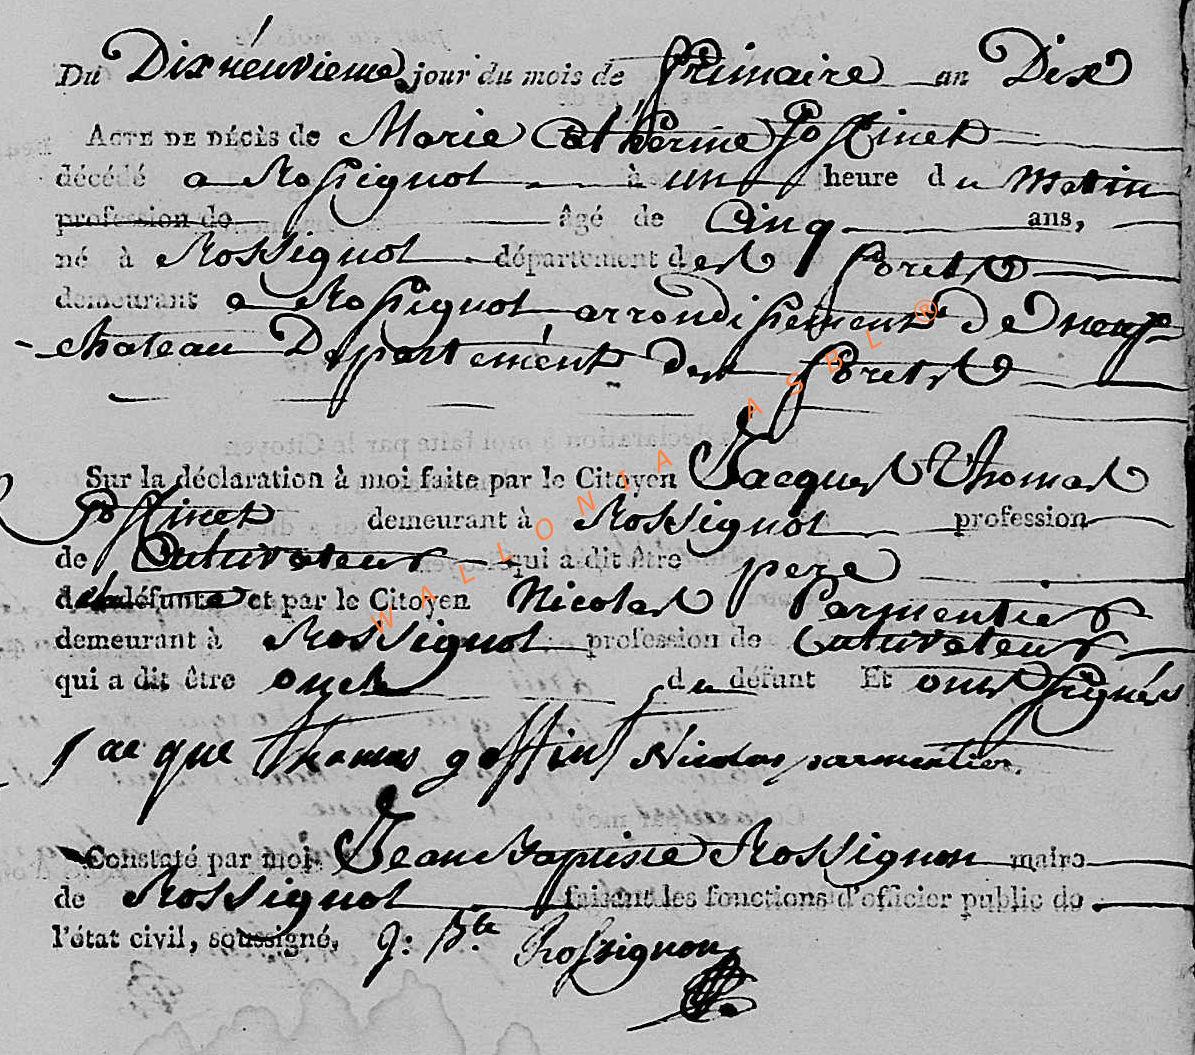 Du Dixneuvieme jour du mois de frimaire an Dix
ACTE DE DÉCÈS de Marie Catherine Goffinet
décédé a Rossignol à un heure du matin
profession de âgé de Cinq ans,
né à Rossignol département des forets
demeurant a Rossignol arrondissement de neuf-
-chateau Departement des forets
Sur la déclaration à moi faite par le Citoyen Jacques Thomas
Goffinet demeurant à Rossignol profession
de Cultivateur qui a dit être pere
défunte et par le Citoyen Nicolas Parmentier
demeurant à Rossignol profession de Cultivateur
qui a dit être oncle du défunt Et ont signés
jacque thomas goffint Nicolas parmentier
Constaté par moi Jean Baptiste Rossignon maire
de Rossignol faisant les fonctions d'officier public de
l'état civil, soussigné, J: Bte Rossignon
WALLONIA ASBL®